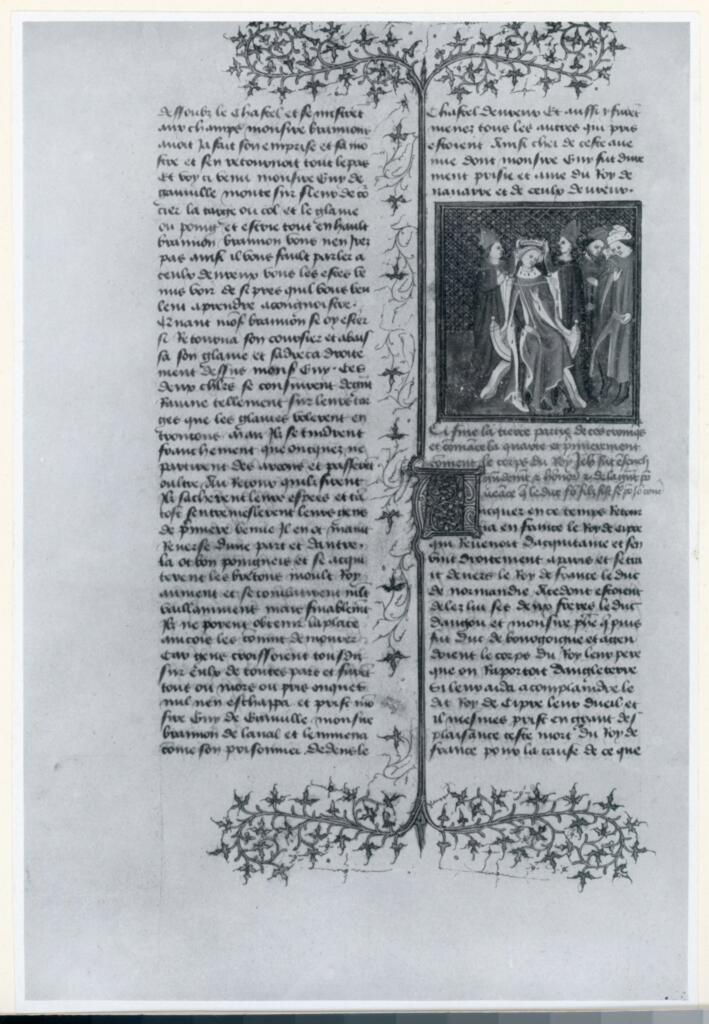 dessoubz le chastel et se misrent
aux champs monsire braimont
auoit ia fait son emprise et sa mo
stre et sen retournoit tout le pas
Et voy ci venir monsire Guy de
gauuille monte sur fleur de co
cier la targe ou col et le glaiue
ou poing et escrie tout en hault
braimon braimon vous nen irez
pas ainsi il vous fault parler a
ceulx deureux vous les estes ve
nus voir de si pres quil vous veu
lent aprendre a congnoistre.
Quant mons braimon se oy escier
si Retourna son coursier et abais
sa son glaiue et sadreca droite
ment dessus mons Guy. Ces
deux chlrs se consuiuent de grant
Rauine tellement sur leurs tar
ges que les glaiues volerent en
troncons mais ilz se tindrent
franchement que oncques ne
partirent des arcons et passerent
oultre Au Retour quilz firent
ilz sacherent leurs espees et tan
tost sentremeslerent leurs gens
de premiere venue il en ot maint
Reuerse dune part et dautre.
la ot bon poingneis et se acqui
terent les bretons moult loy
aument et se combatirent mlt
vaillamment mais finablemt
ilz ne porent obtenir la place
ancois les conuint demourer
Car gens croissoient tousdiz
sur eulx de toutes pars et furent
tous ou mors ou pris onques
nul nen eschapa et prist mon
sire Guy de Gauuille monsire
braimon de laual et lenmena
come son prisonnier dedens le
chastel deureux Et aussi y furent
menez tous les autres qui pris
estoient Ainsi cher de ceste aue
nue dont monsire Guy fut dure
ment prisie et ame du Roy de
nauarre et de ceulx deureux.
Ci fine la tierce partie de ces croniqs
et comace la quarte et premierement
coment le corps du Roy Jeh fut enseueli
a
ueace q le duc so filz
Acques en ce temps Retour
na en france le Roy de cipre
qui Reuenoit dacquitaine et sen
vint droitement a paris et se trai
st deuers le Roy de france le duc
de normandie Adont estoient
delez lui ses deux freres le duc
daniou et monsire phe q puis
fut duc de bourgoigne et aten
doient le corps du Roy leur pere
que on Raportoit dangleterre
Si leur aida a complaindre le
dit Roy de cipre leur dueil et
il mesmes prist en grant des
plaisance ceste mort du Roy de
france pour la cause de ce que